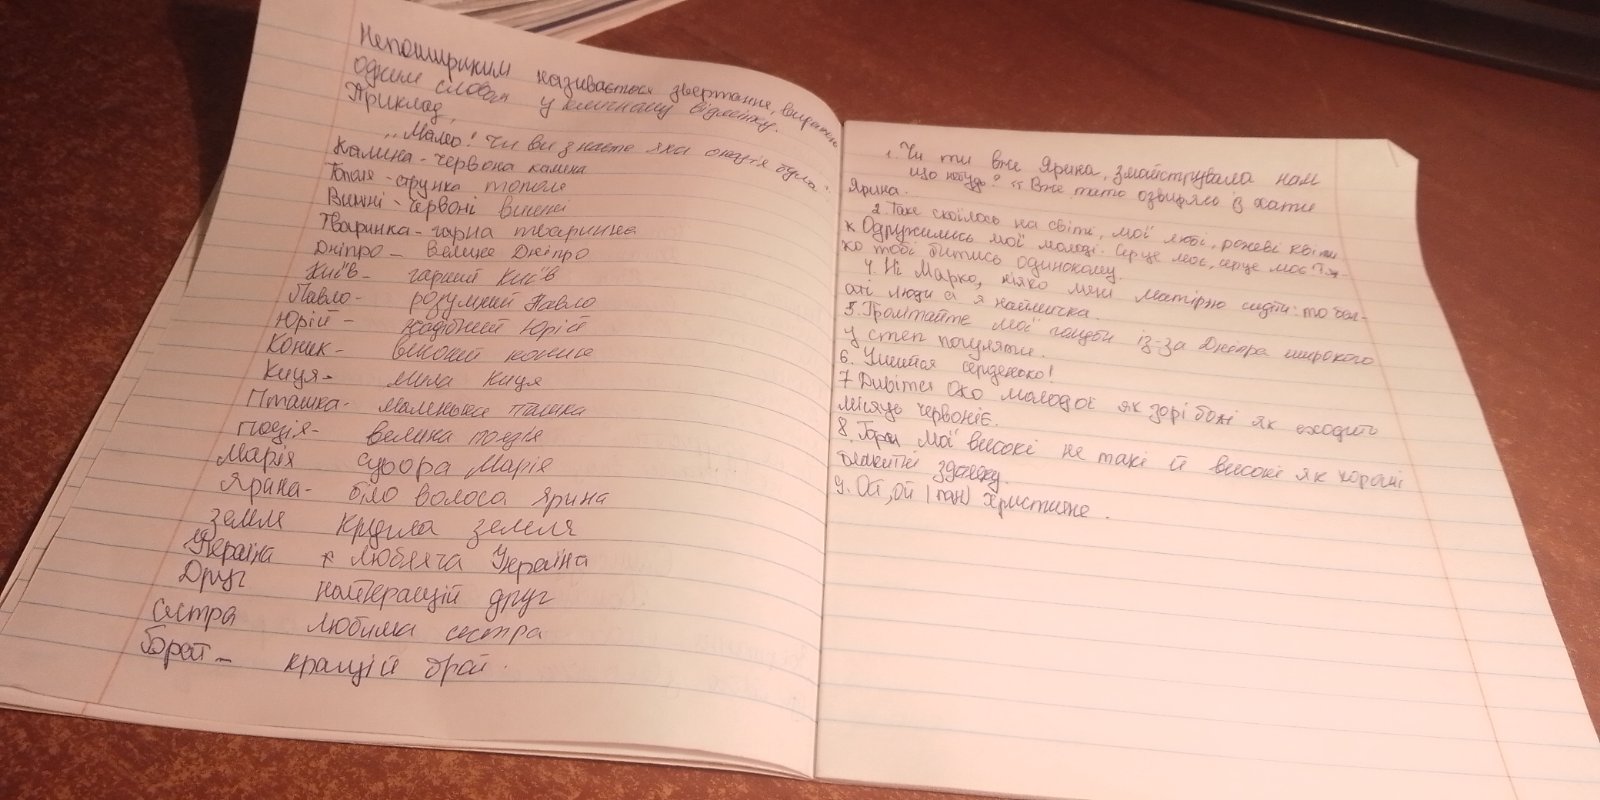 Непошириним називається звертання, виражен
одним словом у кличному відмінку.
Приклад,
„Мамо! Чи ви знаєте яка оказія була?
Калина - червона калина
Тополя - струнка тополя
Вишні - червоні вишні
Тваринка - гарна тваринка
Дніпро - велике Дніпро
Київ - гарний Київ
Павло - розумний Павло
Юрій - Юрій
Коник - високий коник
Киця - мила Киця
Пташка - маленька пташка
поезія - велика поезія
Марія сувора Марія
Ярина - біло волоса Ярина
земля кругла земля
Україна любляча Україна
Друг найкращій друг
Сестра любима сестра
Брат - кращій брат.
1. Чи ти вже Ярина, змайструвала нам
що небудь? " Вже тато озвирлсь з хати
Ярина.
2. Таке скоїлось на світі, мої любі, рожеві квіти
к Одружились мої молоді. Серце моє, серце моє Тяж-
ко тобі битись одинокому.
4. Ні Марко, ніяко мені матірью сидіти: то баг-
аті люди а я наймичка.
5. Прилітайте мої голуби із-за Дніпра широкого
у степ погуляти.
6. Умийся серденько!
7 Дивітся Око молодоє як зорі божі як сходить
місяць червоніє.
8. Гори мої високі не такі й високі як хороші
блакитні здалеку.
9. Ой, ой! пани Християне.